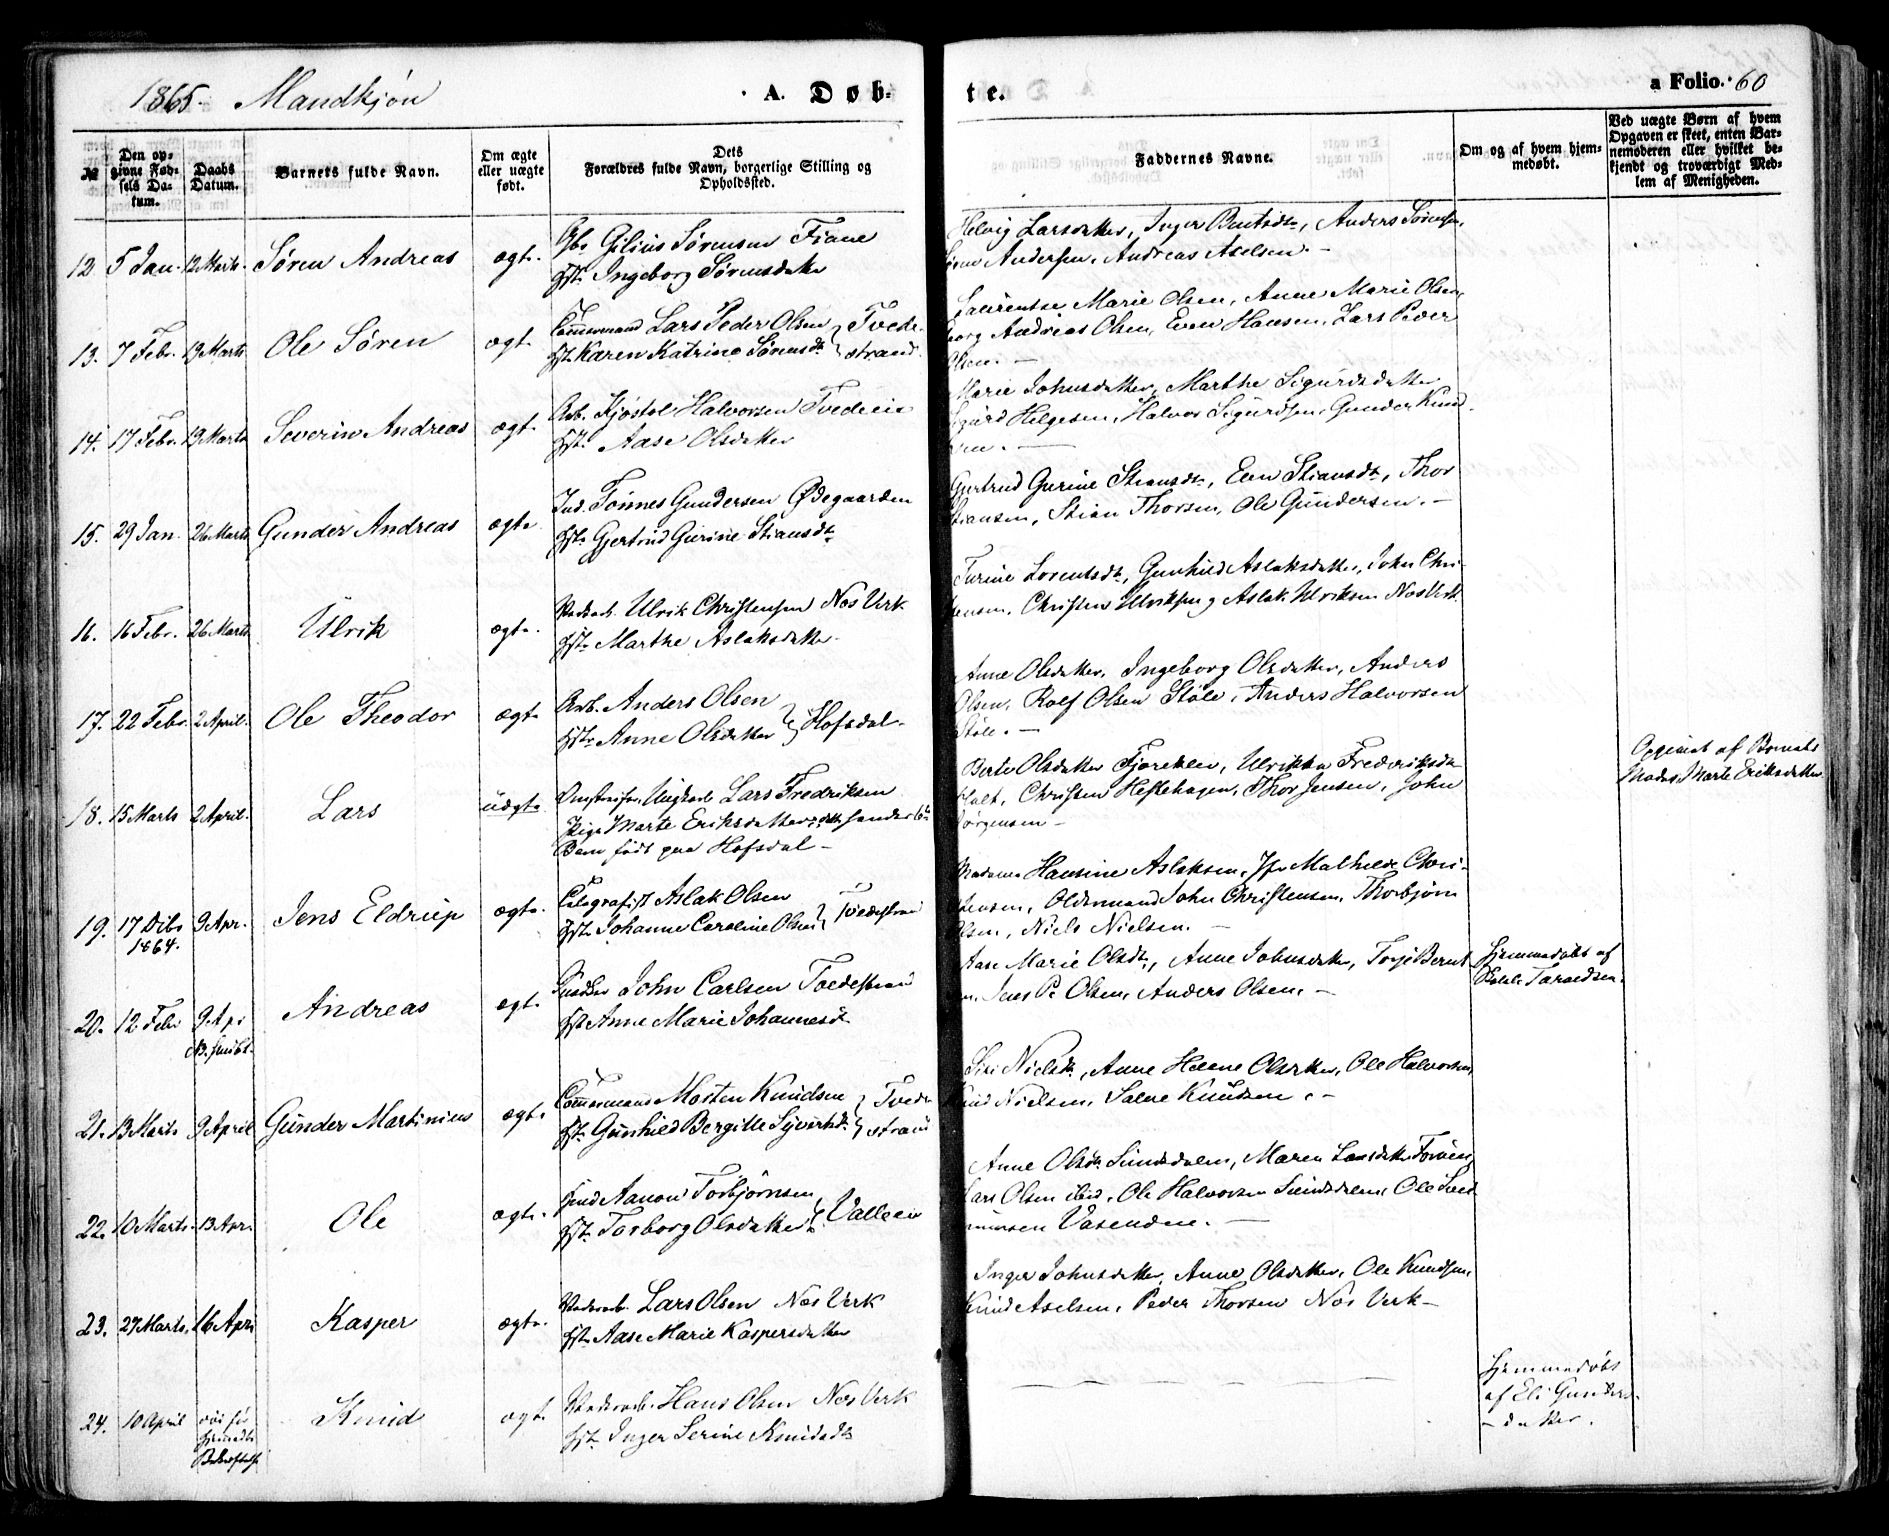 1865. Mandkjøn
A. Døbte.
a Folio. 60
№
Den opgivne Fødsels Datum.
Daabs Datum.
Barnets fulde Navn.
Om ægte eller uægte født.
Dets Forældres fulde Navn, borgerlige Stilling og Opholdssted.
Faddernes Navne.
Om og af hvem hjemmedøbt.
Ved uægte Børn af hvem Opgaven er skeet, enten Barnemoderen eller hvilket bekjendt og troværdigt Medlem af Menigheden.
12 5 Jan. 12 Marts. Søren Andreas ægte.
Gbr Gilius Sørensen Fiane
Hst. Ingeborg Sørensdatter
Helvig Larsdatter, Inger Bentsdtr, Anders Sørensen,
Søren Andersen, Andreas Axelsen. –
13. 7 Febr. 19 Marts Ole Søren ægt.
Tømmermand Lars Peder Olsen } Tvede-
Hst. Karen Katrine Sørensdt } strand
Laurentse Marie Olsen, Anne Marie Olsen,
Georg Andreas Olsen, Even Hansen, Lars Peder
Olsen. –
14. 17 Febr. 19 Marts Severin Andreas ægt.
Arb. Kjøstol Halvorsen Tvedeeie
Hst. Aase Olsdatter
Marie Johnsdatter, Marthe Sigurdsdatter
Sigurd Helgesen, Halvor Sigurdsen, Gunder Knud-
sen. –
15. 29 Jan. 26 Marts Gunder Andreas ægte
Ind. Tønnes Gundersen Ødegaarden
Hst. Gjertrud Gurine Stiansdtr
Gjertrud Gurine Stiansdt, Elen Stiansdt, Thor
Stiansen, Stian Thorsen, Ole Gundersen. –
16. 16 Febr. 26 Marts Ulrik ægte.
Ulrik Christensen Næs Verk
Hst. Marthe Aslaksdatter
Turine Lorentsdt, Gunhild Aslaksdatter, John Chri-
stensen, Christen Ulriksen og Aslak Ulriksen Næs Verk.
17. 22 Febr. 2 April. Ole Theodor ægte
Arb. Anders Olsen
Hst. Anne Olsdatter } Hofsdal.
Anne Olsdatter, Ingeborg Olsdatter, Anders
Olsen, Rolf Olsen Støle, Anders Halvorsen
Støle. –
18. 15 Marts 2 April. Lars uægte
Lars Fredriksen
Pige Marte Eriksdatter
Barn født paa Hofsdal –
Berte Olsdatter, Ulrikke Frederiksdt
Holt, Christen Heftehagen, Thor Jensen, John
Jørgensen –
Opgivet af Barnets
Moder, Marte Eriksdatter
19. 17 Dcbr 1864. 9 Apr. Jens Eldrup ægte.
Telegrafist Aslak Olsen
Hst. Johanne Caroline Olsen } Tvedestrand
Madame Hansine Aslaksen, Jfr Mathilde Chri-
stensen, Oldermand John Christensen, Thorbjørn
Olsen, Niels Nielsen. –
20. 12 Febr 9 Apr Andreas ægt.
John Carlsen Tvedestrand
Hst Anne Marie Johannesdt
Aase Marie Olsdt, Anne Johnsdatter, Terje Bernt-
sen, Jens P. Olsen, Anders Olsen. –
Hjemmedøbt af
Taraldsen.
21. 13 Marts 9 April Gunder Martinius ægt.
Tømmermand Morten Knudsen } Tvede-
Hst. Gunhild Bergitte Syvertsdt. } strand
Siri Nielsdt, Anne Helene Olsdatter, Ole Halvorsen
Knud Nielsen, Salve Knudsen. –
22. 10 Marts. 13 Apr. Ole ægte.
Aanon Torbjørnsen
Hst. Torborg Olsdatter } Valleeie
Anne Olsdt Sundsdalen, Maren Larsdatter
Lars Olsen ibid, Ole Halvorsen Sundsdalen, Ole
Vasenden. –
23. 27 Marts. 16 Apri Kasper ægte.
Lars Olsen Næs Verk
Hst. Aase Marie Kaspersdatter
Inger Johnsdatter, Anne Olsdatter, Ole Knudsen,
Knud Axelsen, Peder Thorsen Næs Verk –
24. 10 April Knud ægt.
Hans Olsen Næs Verk
Hst. Inger Serine Knudsdt
Hjemmedøbt
af Eli Gunders-
datter.